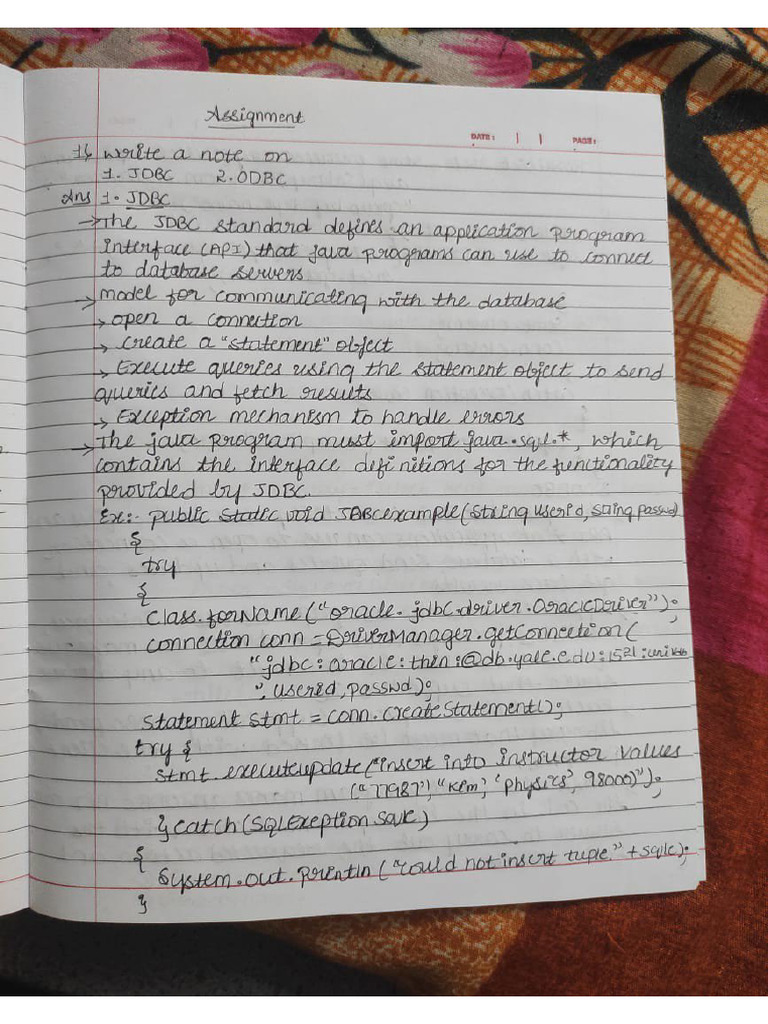 Assignment
DATE: | | PAGE:
1) write a note on
1. JDBC 2. ODBC
Ans 1. JDBC
→ The JDBC standard defines an application program
interface (API) that java programs can use to connect
to database servers
→ model for communicating with the database
→ open a connection
→ create a "statement" object
→ Execute queries using the statement object to send
queries and fetch results
→ Exception mechanism to handle errors
→ The java program must import java.sql.*, which
contains the interface definitions for the functionality
provided by JDBC.
Ex:- public static void JDBCexample(String userid, String passwd)
{
try
{
Class.forName("oracle.jdbc.driver.OracleDriver");
connection conn = DriverManager.getConnection(
"jdbc:oracle:thin:@db.yale.edu:1521:univdb
", userid, passwd);
Statement stmt = conn.createStatement();
try {
stmt.executeupdate("insert into instructor values
('77987', 'Kim', 'physics', 98000)");
} catch (SQLExeption sqle)
{
System.out.println ("could not insert tuple." + sqle);
}